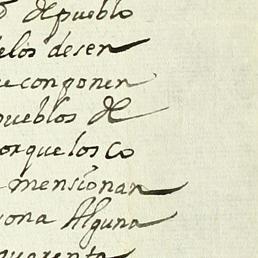 de pueblo
elos desen
ue conponen
pueblos de
orque los co
mensionan
sona Alguna
quarenta